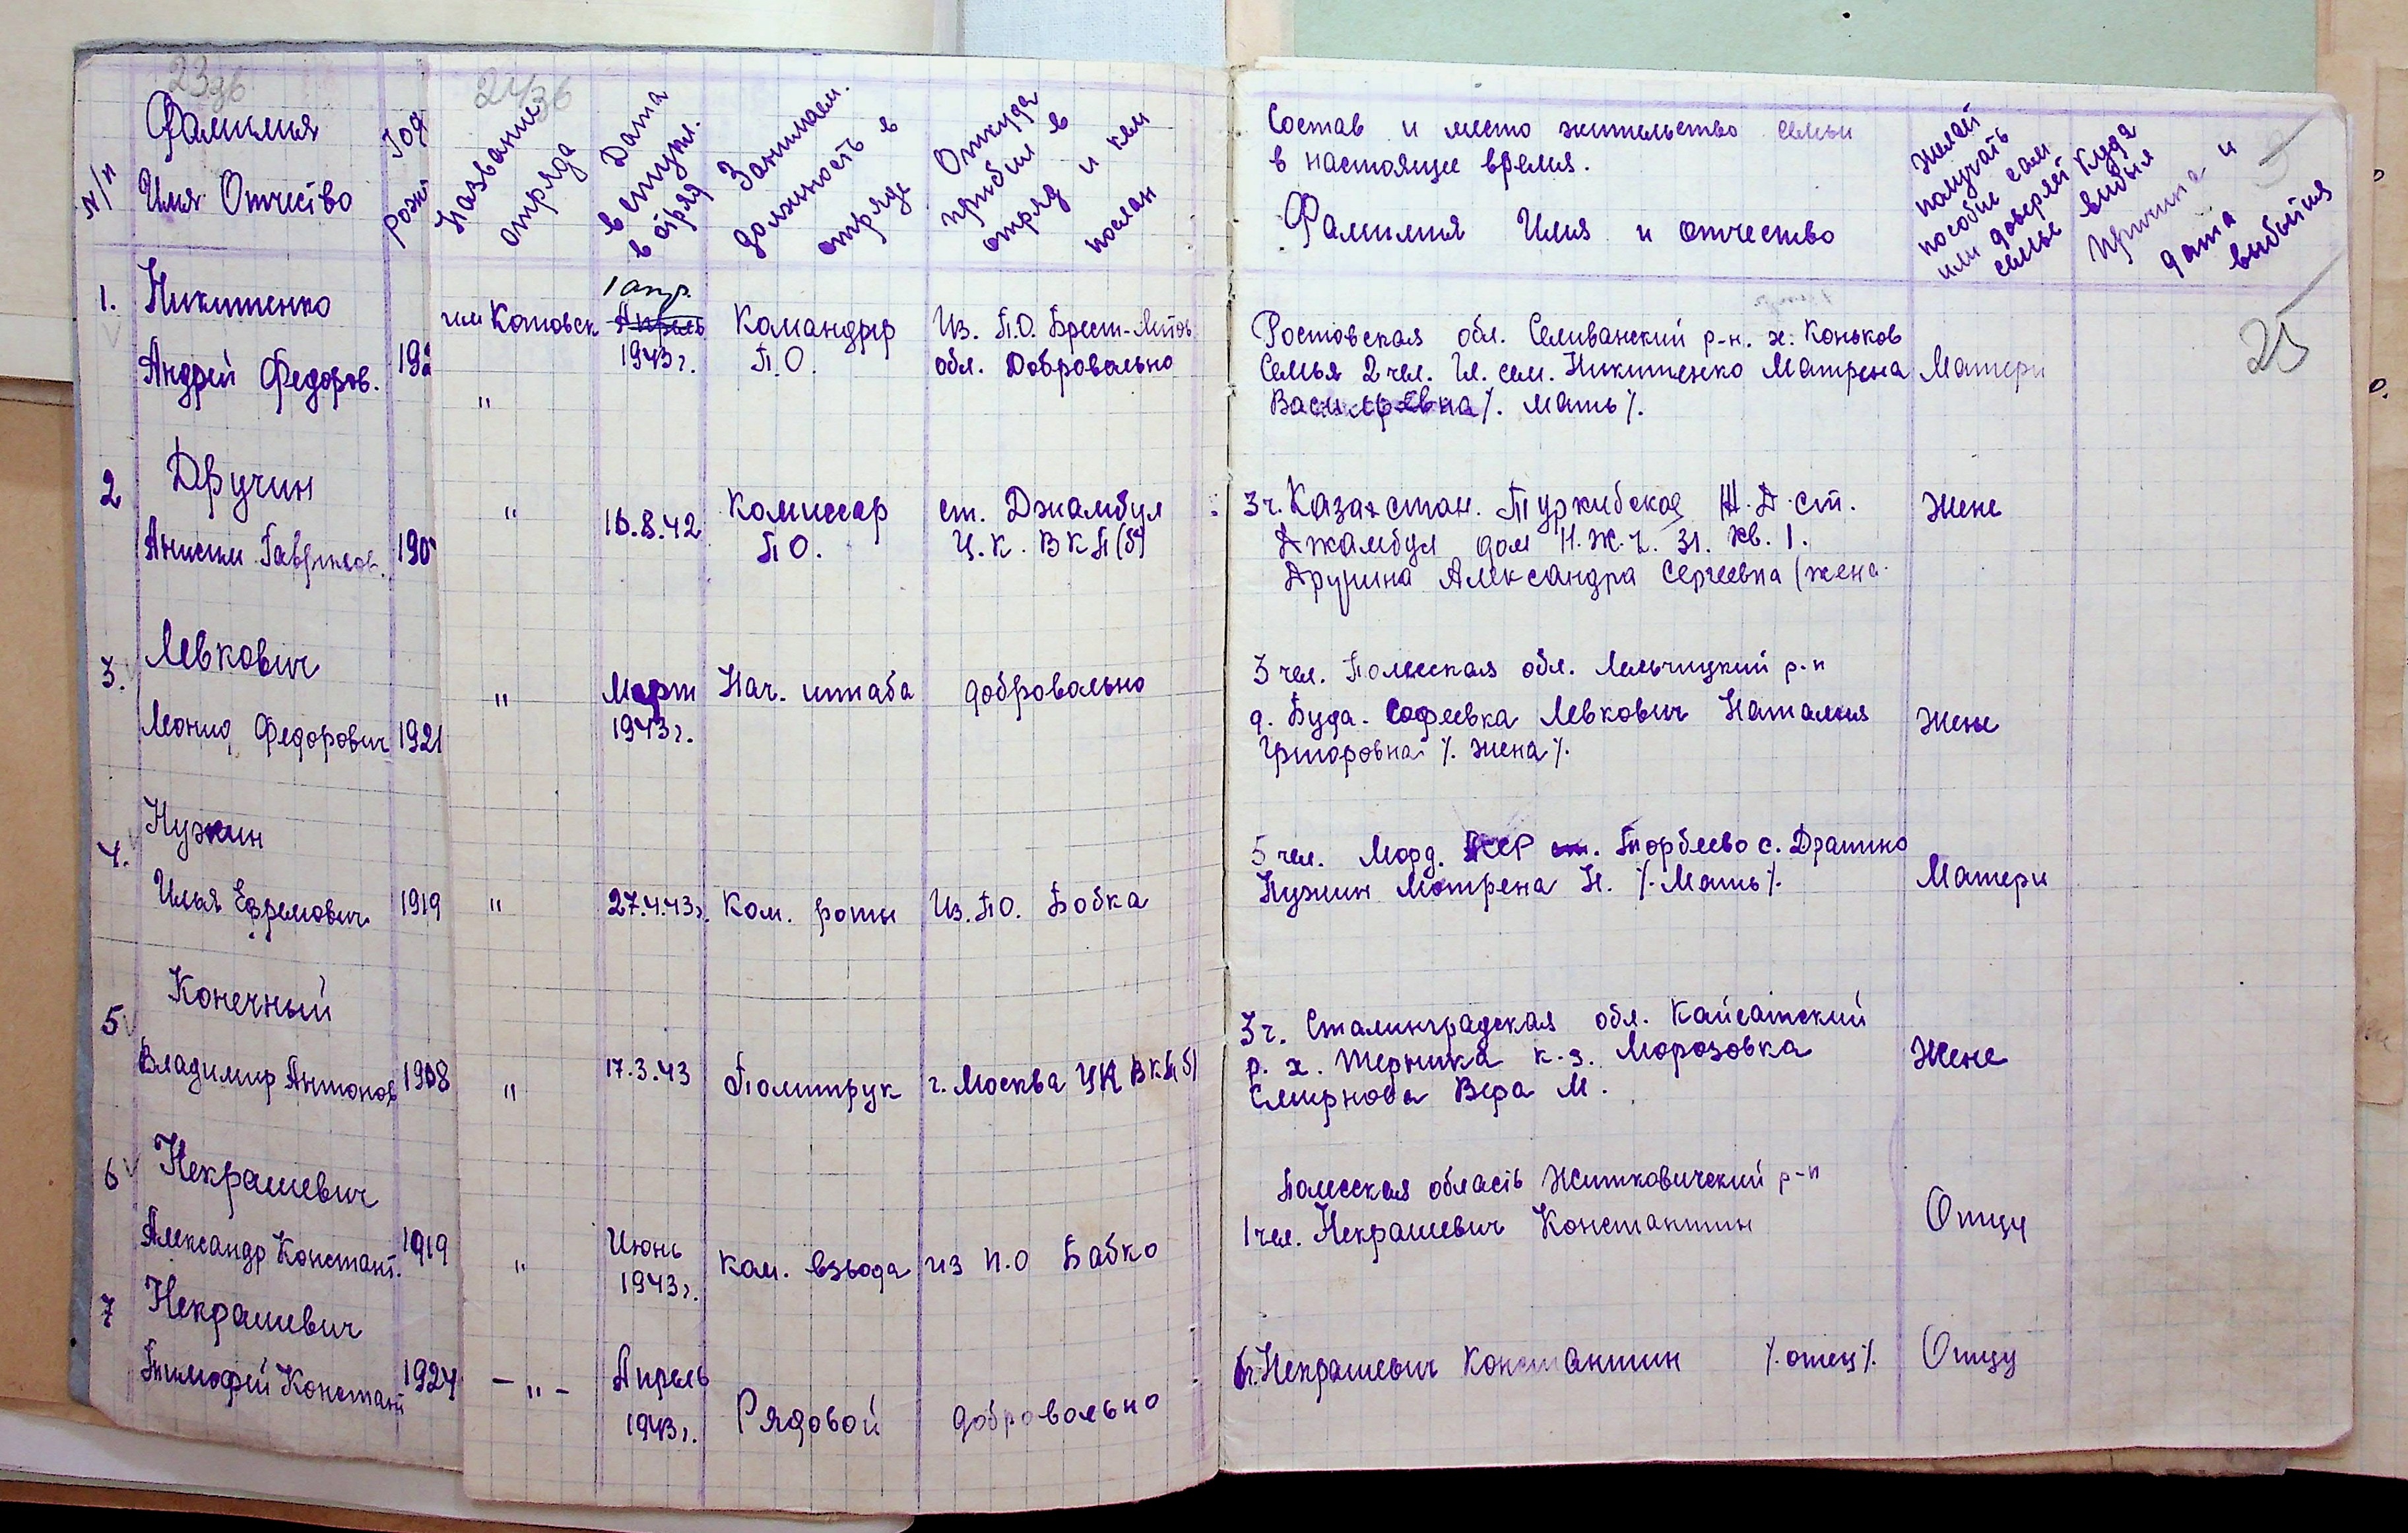 23об
24об
N/п
Фамилия
Имя Отчество
Год
рож
Название
отряда
Дата
вступл.
в отряд
Занимаем.
должность в
отряде
Откуда
прибыл в
отряд и кем
послан
Состав и место жительство семьи
в настоящее время.
Фамилия Имя и отчество
Желает
получать
пособие сам
или доверяет
семье
Куда
выбыл
Причина и
дата
выбытия
25
1. Никитенко
Андрей Федоров. 192
им Котовск
"
1 апр.
Апрель
1943 г.
Командир
П.О.
Из. П.О. Брест-Литов
обл. Добровально
Ростовская обл. Селиванский р-н. х: Коньков
Семья 2 чел. Гл. сем. Никитенко Матрена
Васильевна /. мать /.
Матери
2 Дручин
Анисим Гаврилов. 190
"
16.8.42
Комиссар
ПО.
ст. Джамбул
Ц.К. ВКП(б)
3 ч. Казахстан. Туркибская Ж.Д. ст.
Джамбул дом Н.Ж.Ч. 31. кв. 1.
Дручина Александра Сергеевна (жена
Жене
3. Левкович
Леонид Федорович 1921
"
Март
1943 г.
Нач. штаба
добровально
3 чел. Полесская обл. Лельчицкий р-н
д. Буда. Софеевка Левкович Наталия
Григоровна /. жена /.
Жене
4. Нужин
Илья Ефремович 1919
"
27.4.43 г.
Ком. роты
Из. ПО. Бобка
5 чел. Морд. ст. Торбеево с. Дракино
Нужин Мотрена Н. /. Мать /.
Матери
5 Конечный
Владимир Антонов 1908
"
17.3.43
Политрук
г. Москва ЦК ВКП(б)
3 ч. Сталинградская обл. Кайсатский
р. х. Жерника к-з. Морозовка
Смирнова Вера М.
Жене
6 Некрашевич
Александр Констант. 1919
"
Июнь
1943 г.
Ком. взвода
из п.о Бабко
Полесская область Житковичский р-н
1 чел. Некрашевич Константин
Отцу
7 Некрашевич
Тимофей Констант 1924
- " -
Апрель
1943 г.
Рядовой
добровольно
6 ч. Некрашевич Константин /. отец /.
Отцу